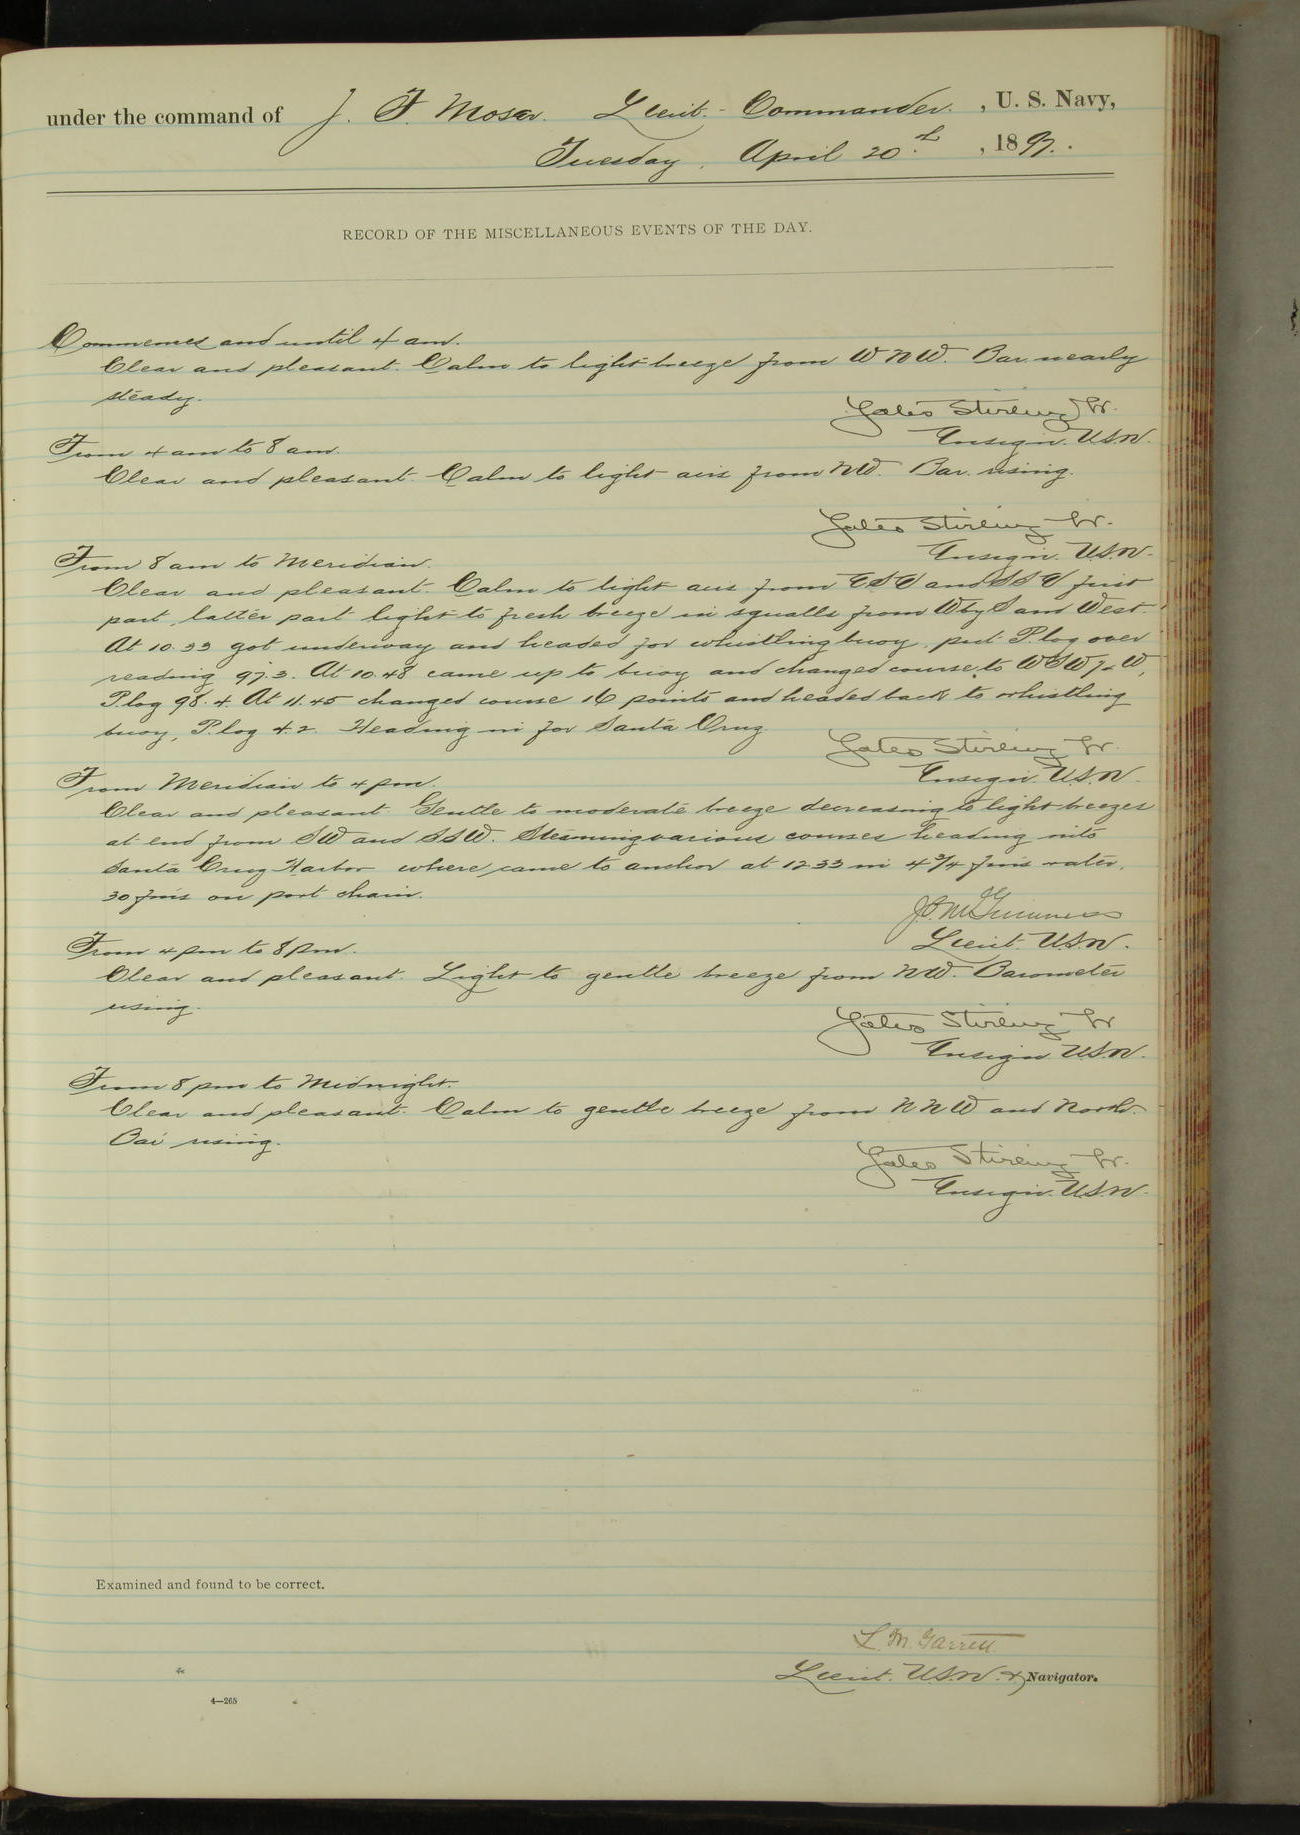 under the command of J. F. Moser. Lieut.-Commander. , U. S. Navy,
Tuesday, April 20th , 1897.
RECORD OF THE MISCELLANEOUS EVENTS OF THE DAY.
Commences and until 4 am.
Clear and pleasant. Calm to light breeze from WNW. Bar. nearly
steady.
Yates Stirling Jr.
Ensign. U.S.N.
From 4 am to 8 am.
Clear and pleasant. Calm to light airs from NW. Bar. rising.
Yates Stirling Jr.
Ensign. U.S.N.
From 8 am to Meridian.
Clear and pleasant. Calm to light airs from ESE and SSE first
part, latter part light to fresh breeze in squalls from W by S and West.
At 10.33 got underway and headed for whistling buoy, put P. log over
reading 97.3. At 10.48 came up to buoy and changed course to WSW W,
P. log 98.4. At 11.45 changed course 16 points and headed back to whistling
buoy, P. log 4.2. Heading in for Santa Cruz
Yates Stirling Jr.
Ensign. U.S.N.
From Meridian to 4 pm.
Clear and pleasant. Gentle to moderate breeze decreasing to light breezes
at end from SW and SSW. Steaming various courses heading into
Santa Cruz Harbor where came to anchor at 12 33 in 4 3/4 fms water.
30 fms on port chain.
Lieut. U.S.N.
From 4 pm to 8 pm.
Clear and pleasant. Light to gentle breeze from NW. Barometer
rising.
Yates Stirling Jr
Ensign U.S.N.
From 8 pm to Midnight.
Clear and pleasant. Calm to gentle breeze from NNW and North.
Bar rising.
Yates Stirling Jr.
Ensign. U.S.N.
Examined and found to be correct.
L. M. Garrett
Lieut. U.S.N. & Navigator.
4—265